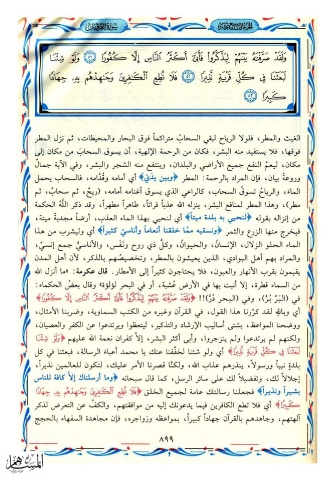 وَلَقَدْ صَرَّفْنَاهُ بَيْنَهُمْ لِيَذَّكَّرُوا فَأَبَىٰ أَكْثَرُ النَّاسِ إِلَّا كُفُورًا ۝ وَلَوْ شِئْنَا
لَبَعَثْنَا فِي كُلِّ قَرْيَةٍ نَذِيرًا ۝ فَلَا تُطِعِ الْكَافِرِينَ وَجَاهِدْهُمْ بِهِ جِهَادًا
كَبِيرًا ۝
الغيث والمطر، فلولا الرياح لبقي السحاب متراكماً فوق البحار والمحيطات، ثم نزل المطر
فوقها، فلا يستفيد منه البشر، فكان من الرحمة الإلهية، أن يسوق السحاب من مكان إلى
مكان، ليعمَّ النفع جميع الأراضي والبلدان، وينتفع منه الشجر والبشر، وفي الآية جمالُ
وروعةُ بيان، فإن المراد بالرحمة: المطر ﴿وبين يديْ﴾ أي أمامه وقُدَّامه، فالسحاب يحمل
الماء، والرياحُ تسوقُ السحاب، كالراعي الذي يسوق أغنامه أمامه (ريحٌ، ثم سحابٌ، ثم
مطر)، وهذا المطر لمنافع البشر، ينزله الله عذباً فراتاً، طاهراً مطهراً، وقد ذكر اللَّهُ الحكمة
من إنزاله بقوله ﴿لنحيي به بلدة ميتاً﴾ أي لنحيي بهذا الماء العذب، أرضاً مجدبةً ميتة،
فيخرج منها الزرع والثمر ﴿ونسقيه مما خلقنا أنعاماً وأناسيّ كثيراً﴾ أي وليشرب من هذا
الماء الحلو الزلال، الإنسانُ، والحيوانُ، وكلُّ ذي روحٍ ونَفْس، والأناسيُّ جمع إنسيّ،
والمراد بهم أهل البوادي، الذين يعيشون بالمطر، وتخصيصُهم بالذكر، لأن أهل المدن
يقيمون بقرب الأنهار والعيون، فلا يحتاجون كثيراً إلى الأمطار. قال عكرمة: «ما أنزل الله
من السماء قطرة، إلا أنبت بها في الأرض عُشبة، أو في البحر لؤلؤة» وقال بعض الحكماء:
في (البَرّ بُرّ)، وفي (البحر دُرّ)!! ﴿وَلَقَدْ صَرَّفْنَاهُ بَيْنَهُمْ لِيَذَّكَّرُوا فَأَبَىٰ أَكْثَرُ النَّاسِ إِلَّا كُفُورًا﴾
أي وباللهِ لقد كرَّرنا هذا القول، في القرآن وغيره من الكتب السماوية، وضربنا الأمثال،
ووضحنا المواعظ، بشتى أساليب الإرشاد والتذكير، ليتعظوا ويرتدعوا عن الكفر والعصيان،
ولكنهم لم يرتدعوا ولم ينزجروا، وأبى أكثر البشر، إلاّ كفران نعمة الله عليهم ﴿وَلَوْ شِئْنَا
لَبَعَثْنَا فِي كُلِّ قَرْيَةٍ نَذِيرًا﴾ أي ولو شئنا لخفَّفنا عنك يا محمد أعباء الرسالة، فبعثنا في كل
بلدةٍ نبياً ورسولاً، ينذرهم عذاب الله، ولكنَّا قصرنا الأمر عليك، لتكون للعالمين نذيراً،
إجلالاً لك، وتفضيلاً لك على سائر الرسل، كما قال سبحانه ﴿وما أرسلناك إلاَّ كافة للناس
بشيراً ونذيراً﴾ فجعلنا رسالتك عامة لجميع الخلق ﴿فَلَا تُطِعِ الْكَافِرِينَ وَجَاهِدْهُمْ بِهِ جِهَادًا
كَبِيرًا﴾ أي فلا تطع الكافرين فيما يدعونك إليه من موافقتهم، والكفِّ عن التعرض لذكر
آلهتهم، وجاهدهم بالقرآن جهاداً كبيراً، بمواعظه وزواجره، فإن مجاهدة السفهاء بالحجج
٨٩٩